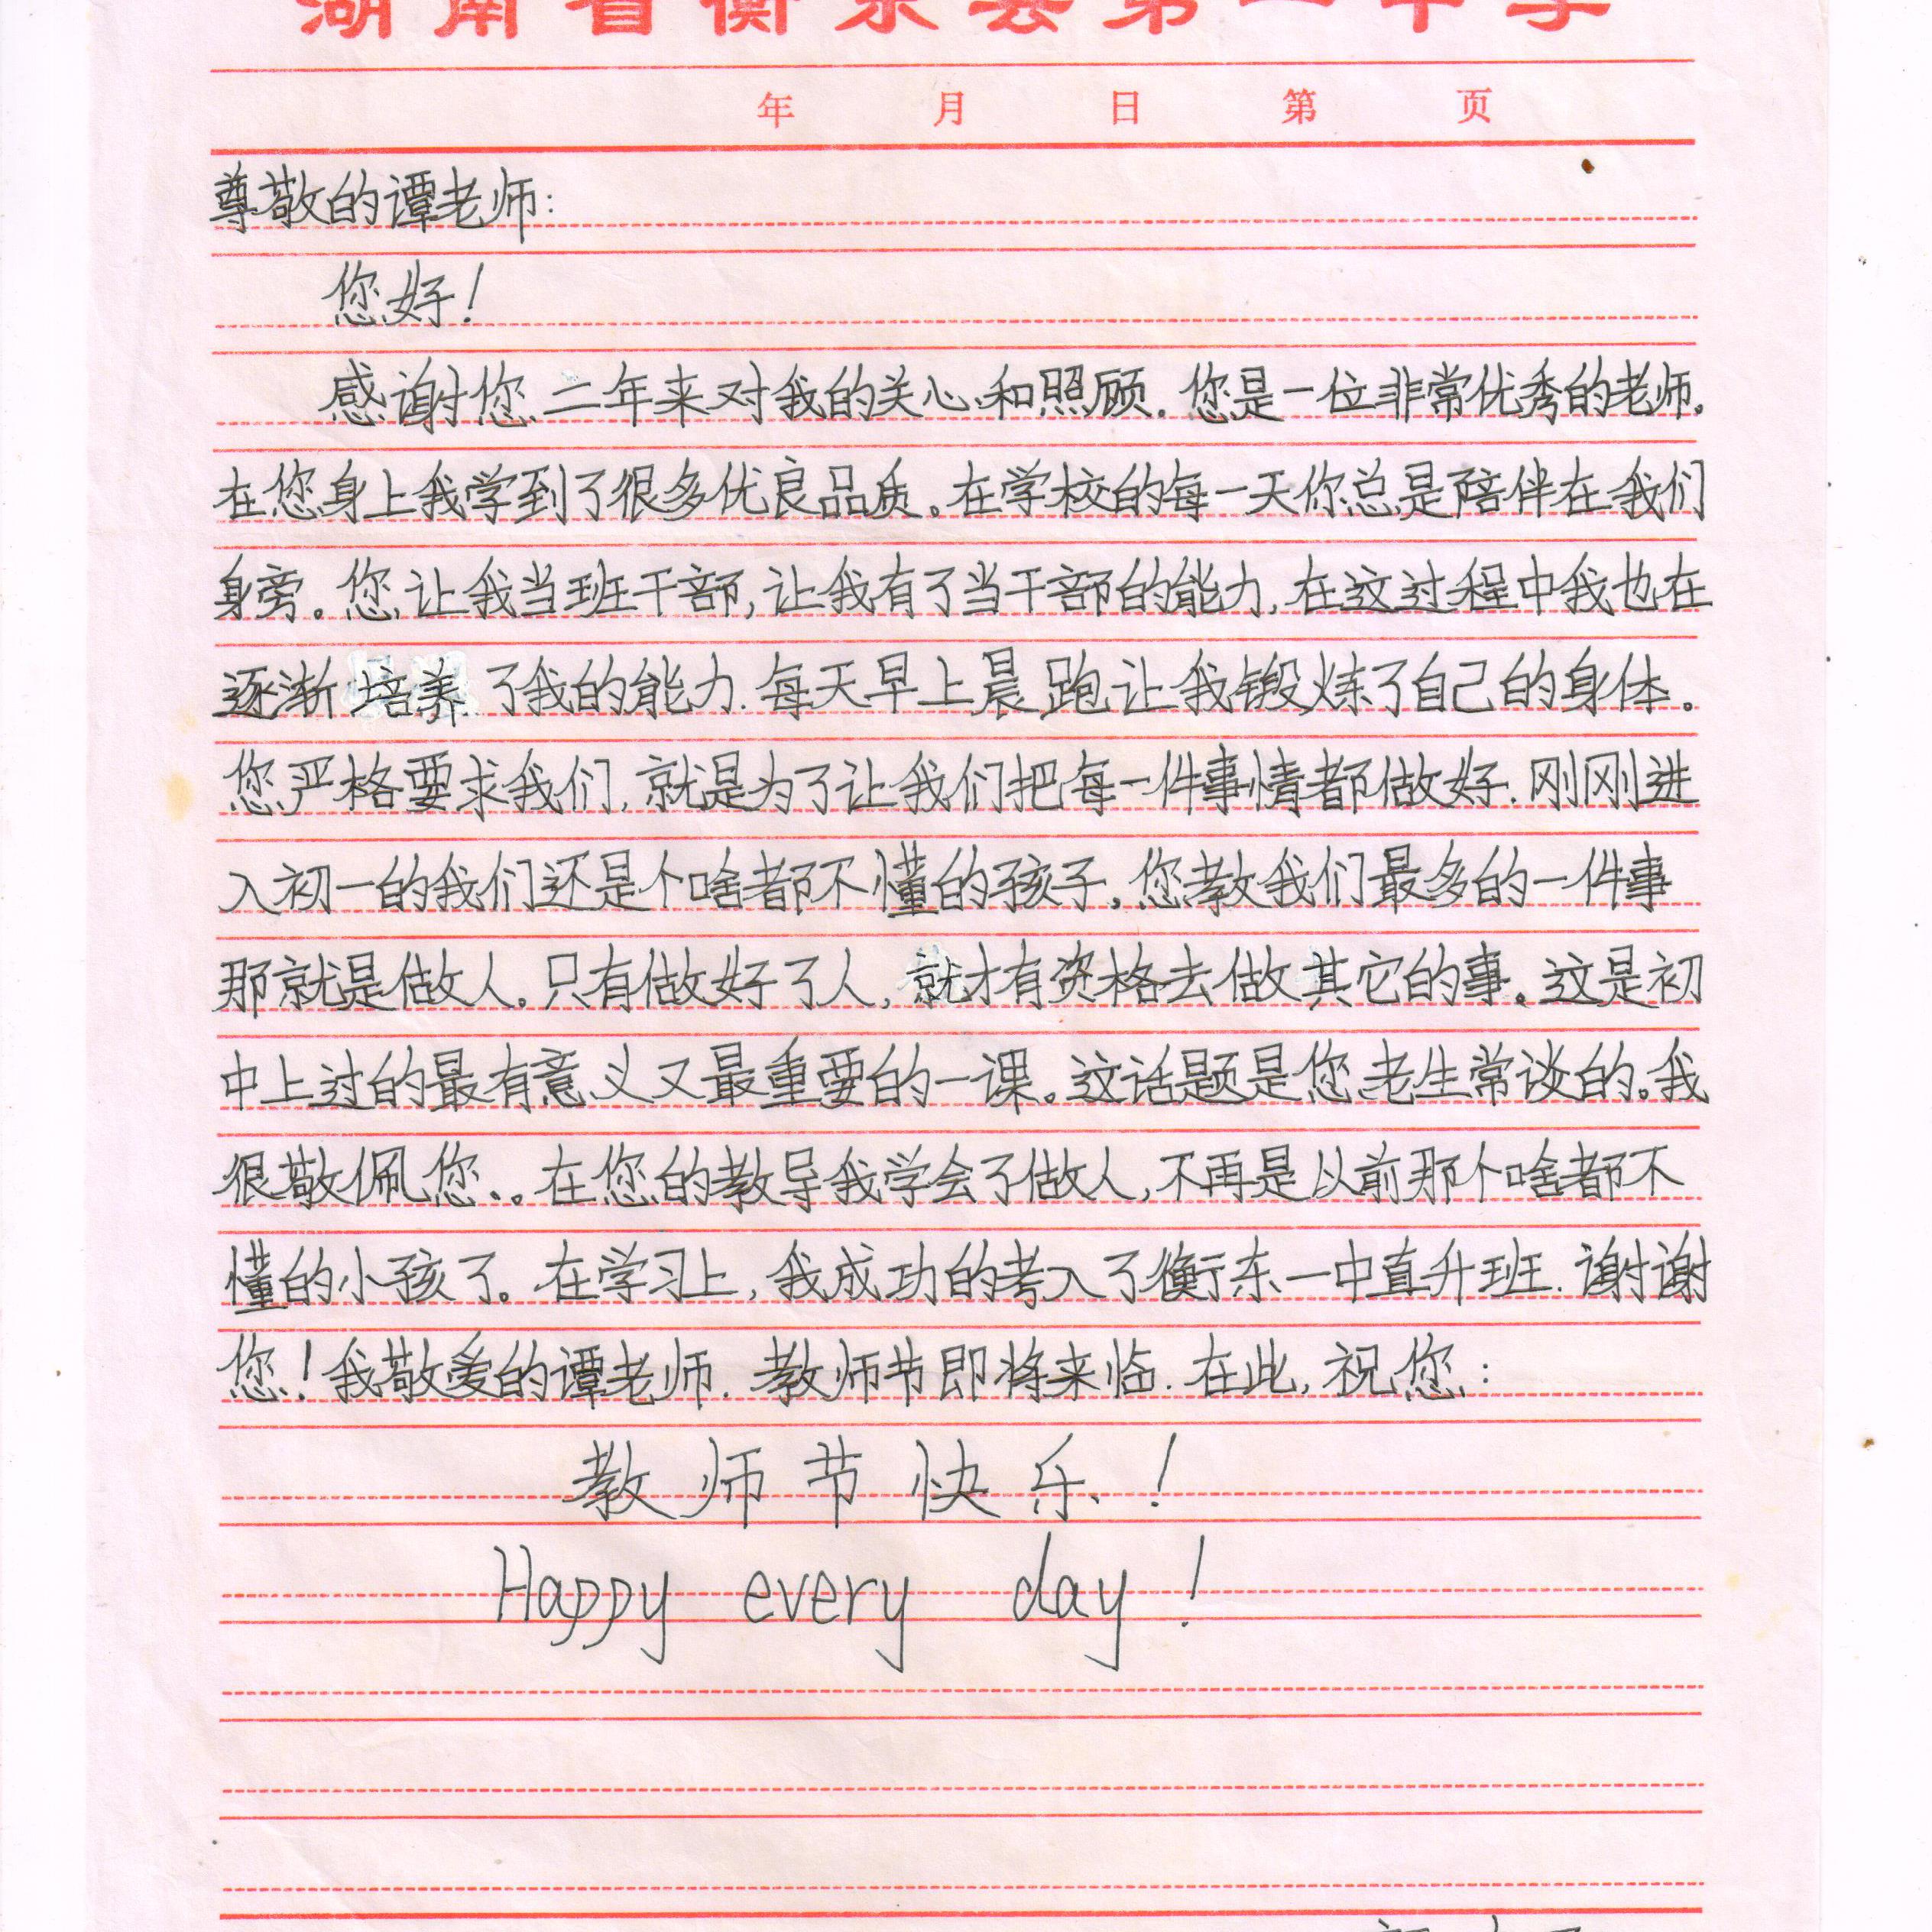 湖南省衡东县第一中学
年 月 日 第 页
尊敬的谭老师:
您好!
感谢您二年来对我的关心和照顾.您是一位非常优秀的老师。
在您身上我学到了很多优良品质。在学校的每一天你总是陪伴在我们
身旁。您让我当班干部,让我有了当干部的能力.在这过程中我也在
逐渐培养了我的能力.每天早上晨跑让我锻炼了自己的身体。
您严格要求我们.就是为了让我们把每一件事情都做好.刚刚进
入初一的我们还是个啥都不懂的孩子.您教我们最多的一件事
那就是做人。只有做好了人,就才有资格去做其它的事。这是初
中上过的最有意义又最重要的一课。这话题是您老生常谈的。我
很敬佩您..在您的教导我学会了做人,不再是以前那个啥都不
懂的小孩了。在学习上,我成功的考入了衡东一中直升班.谢谢
您!我敬爱的谭老师.教师节即将来临.在此,祝您:
教师节快乐!
Happy every day!